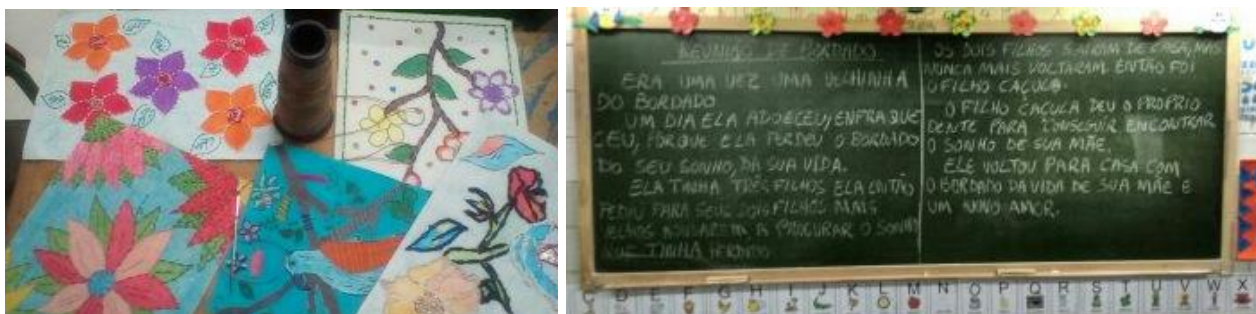 REUNIÃO DE BORDADO
ERA UMA VEZ UMA VELHINHA
DO BORDADO
UM DIA ELA ADOECEU, ENFRAQUE
CEU, PORQUE ELA PERDEU O BORDADO
DO SEU SONHO, DA SUA VIDA.
ELA TINHA TRÊS FILHOS ELA ENTÃO
PEDIU PARA SEUS DOIS FILHOS MAIS
VELHOS AJUDAREM A PROCURAR O SONHO
QUE TINHA PERDIDO
OS DOIS FILHOS SAIRAM DE CASA, MAS
NUNCA MAIS VOLTARAM. ENTÃO FOI
O FILHO CAÇULA.
O FILHO CAÇULA DEU O PRÓPRIO
DENTE PARA CONSEGUIR ENCONTRAR
O SONHO DE SUA MÃE.
ELE VOLTOU PARA CASA COM
O BORDADO DA VIDA DE SUA MÃE E
UM NOVO AMOR.
C D E F G H I J K L M N O P Q R S T U V W X